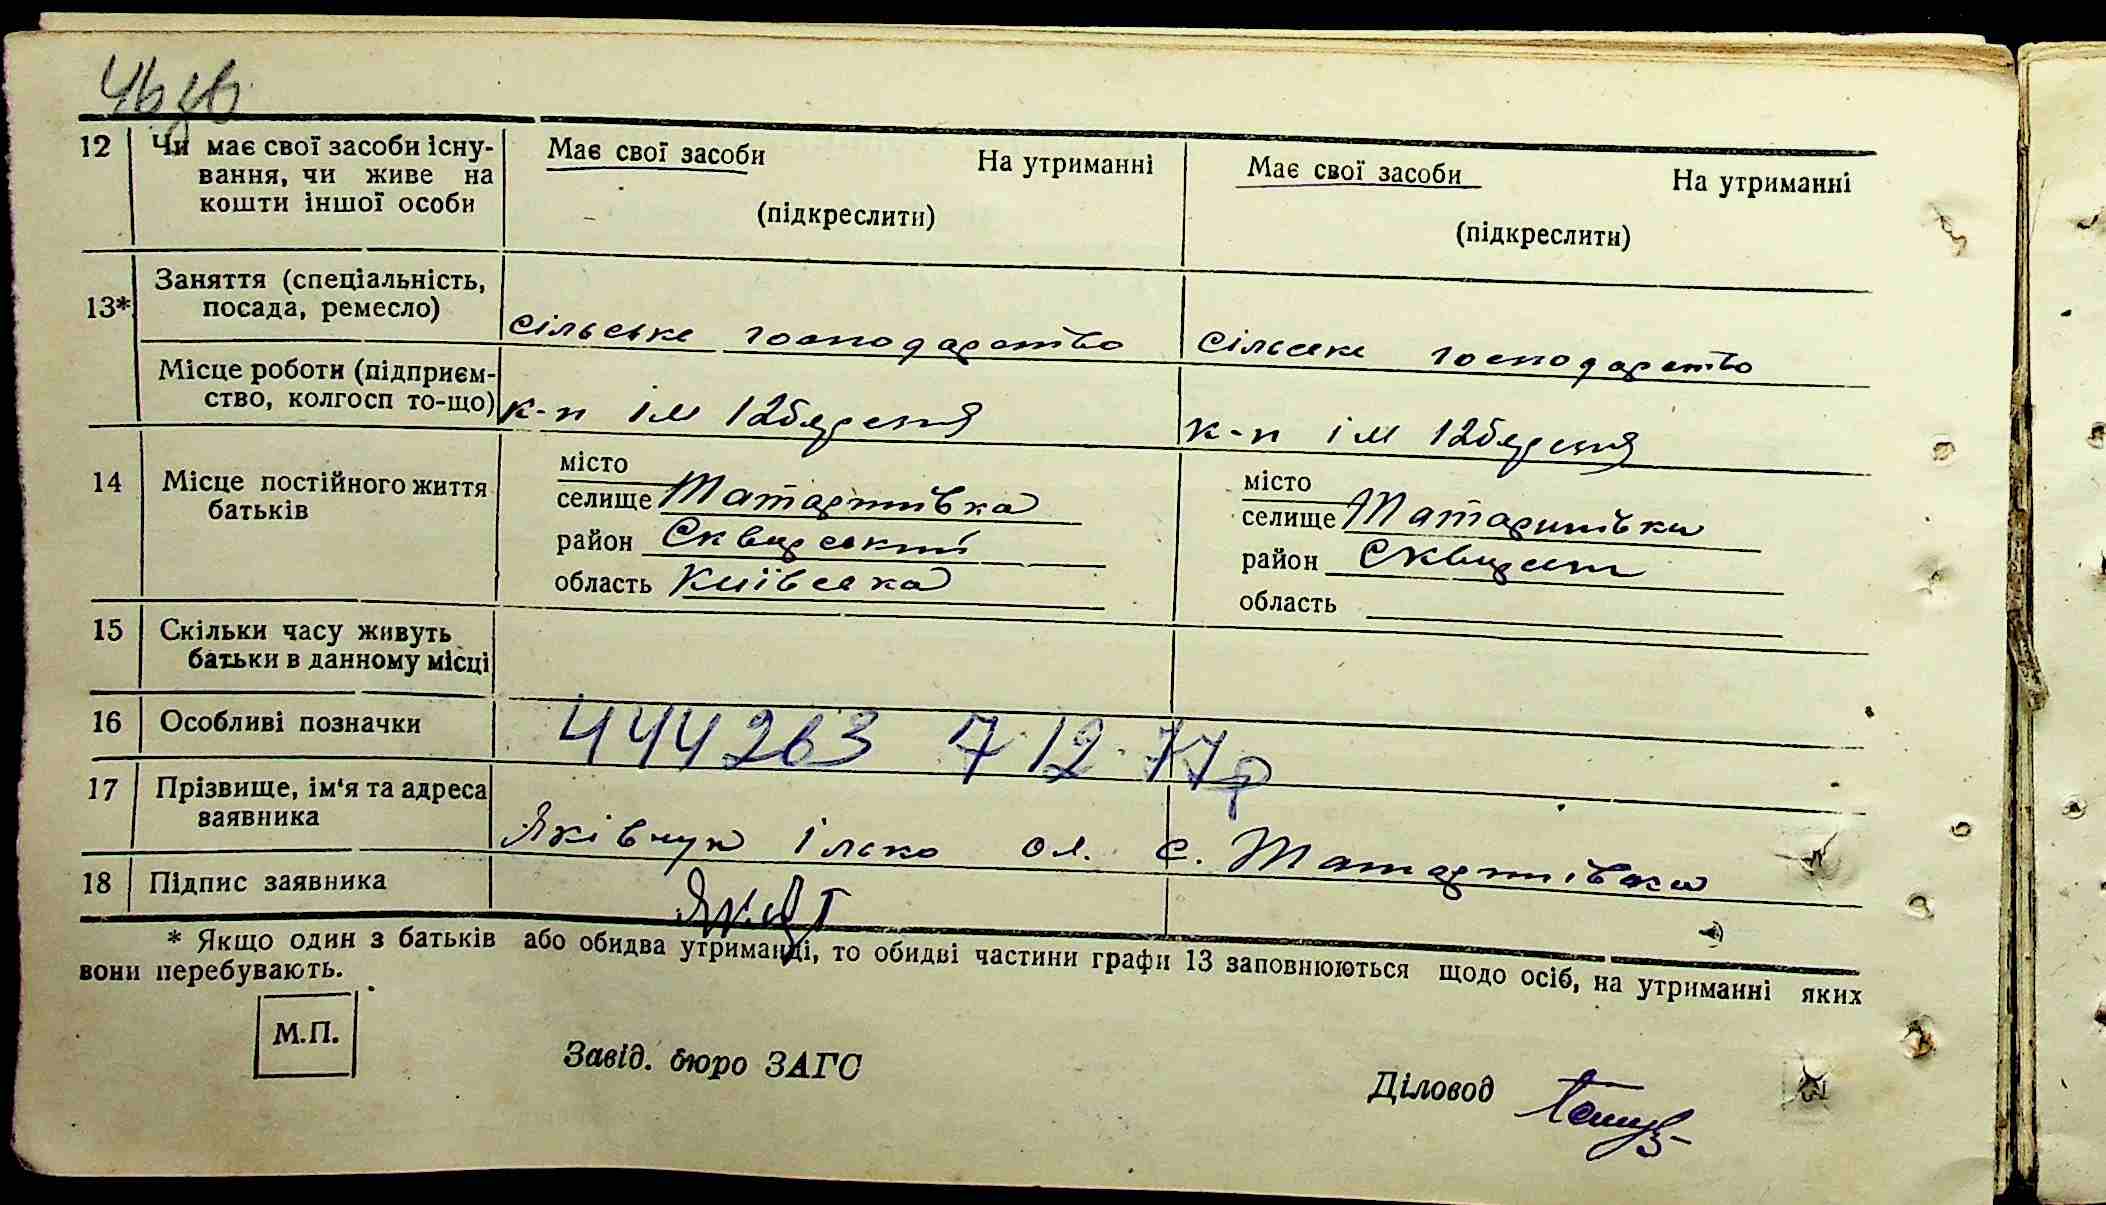 12 Чи має свої засоби існу-
вання, чи живе на
кошти іншої особи
Має свої засоби На утриманні
(підкреслити)
Має свої засоби На утриманні
(підкреслити)
13* Заняття (спеціальність,
посада, ремесло)
сільське господарство
сільське господарство
Місце роботи (підприєм-
ство, колгосп то-що)
к-п ім 12
к-п ім 12
14 Місце постійного життя
батьків
місто
селище Татаринівка
район Сквирський
область Київська
місто
селище Татаринівка
район
область
15 Скільки часу живуть
батьки в данному місці
16 Особливі позначки
444263 7 12 77р
17 Прізвище, ім'я та адреса
заявника
Яківчук Ілько Ол. с. Татаринівки
18 Підпис заявника
* Якщо один з батьків або обидва утриманці, то обидві частини графи 13 заповнюються щодо осіб, на утриманні яких
вони перебувають.
М.П.
Завід. бюро ЗАГС
Діловод